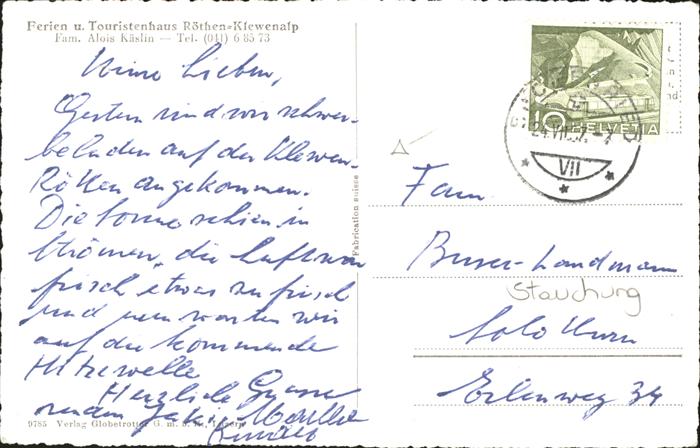 Ferien u. Touristenhaus Röthen-Klewenalp
Fam. Alois Käslin — Tel. (041) 6 85 73
Meine Lieben,
Gestern sind wir schwer-
beladen auf der Klewen-
Röthen angekommen.
Die Sonne schien in
Strömen, die Luft war
frisch etwas zu frisch
und nun warten wir
auf die kommende
Hitzewelle
Herzliche Grüsse
9785 Verlag Globetrotter G. m. b. H., Luzern
Fabrication suisse
10 HELVETIA
VII
Fam.
Buser-Landmann
Stauchung
Solothurn
Erlenweg 34